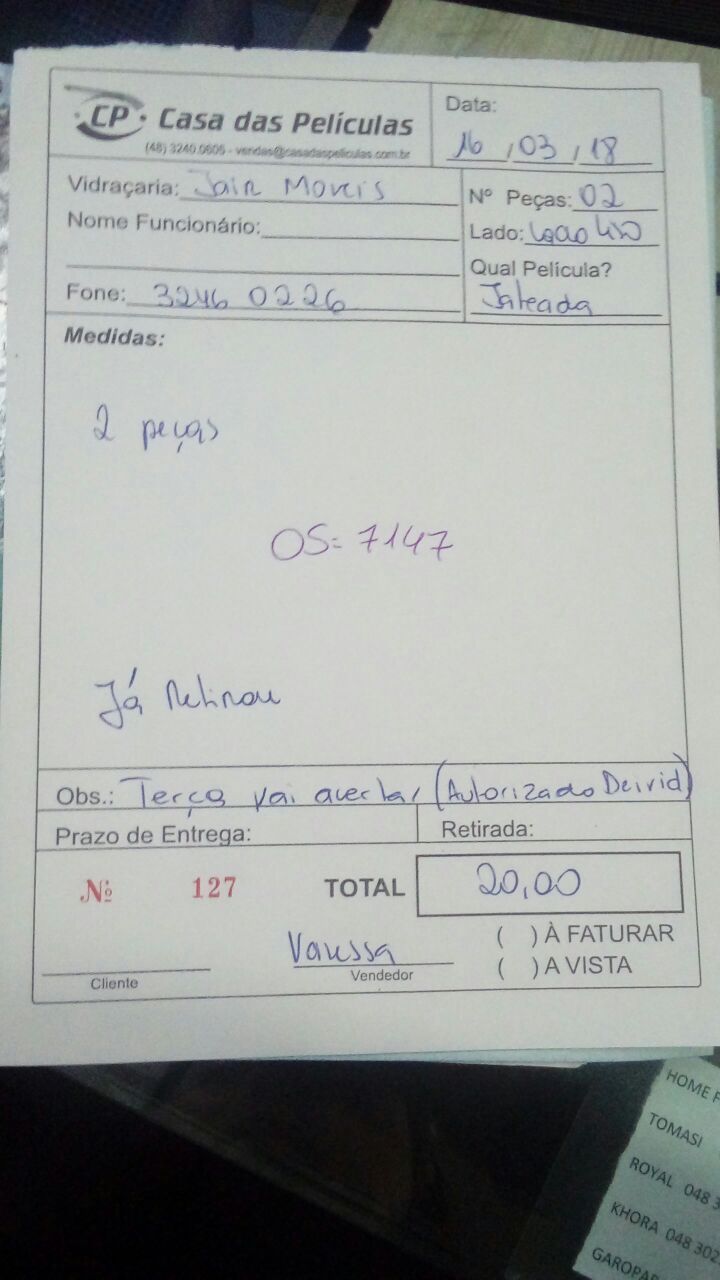 CP Casa das Películas
(48) 3240.0605 - vendas@casadaspeliculas.com.br
Data:
16 / 03 / 18
Vidraçaria: Jair Moveis
Nº Peças: 02
Nome Funcionário:
Lado: liso
Qual Película?
Fone: 3246 0226
Jateada
Medidas:
2 peças
OS= 7147
Já Retirou
Obs.: Terça vai acertar (Autorizado Deivid)
Prazo de Entrega:
Retirada:
Nº 127
TOTAL 20,00
( ) À FATURAR
( ) A VISTA
Vanessa
Cliente
Vendedor
HOME F
TOMASI
ROYAL 048 3
KHORA 048 302
GAROPAB